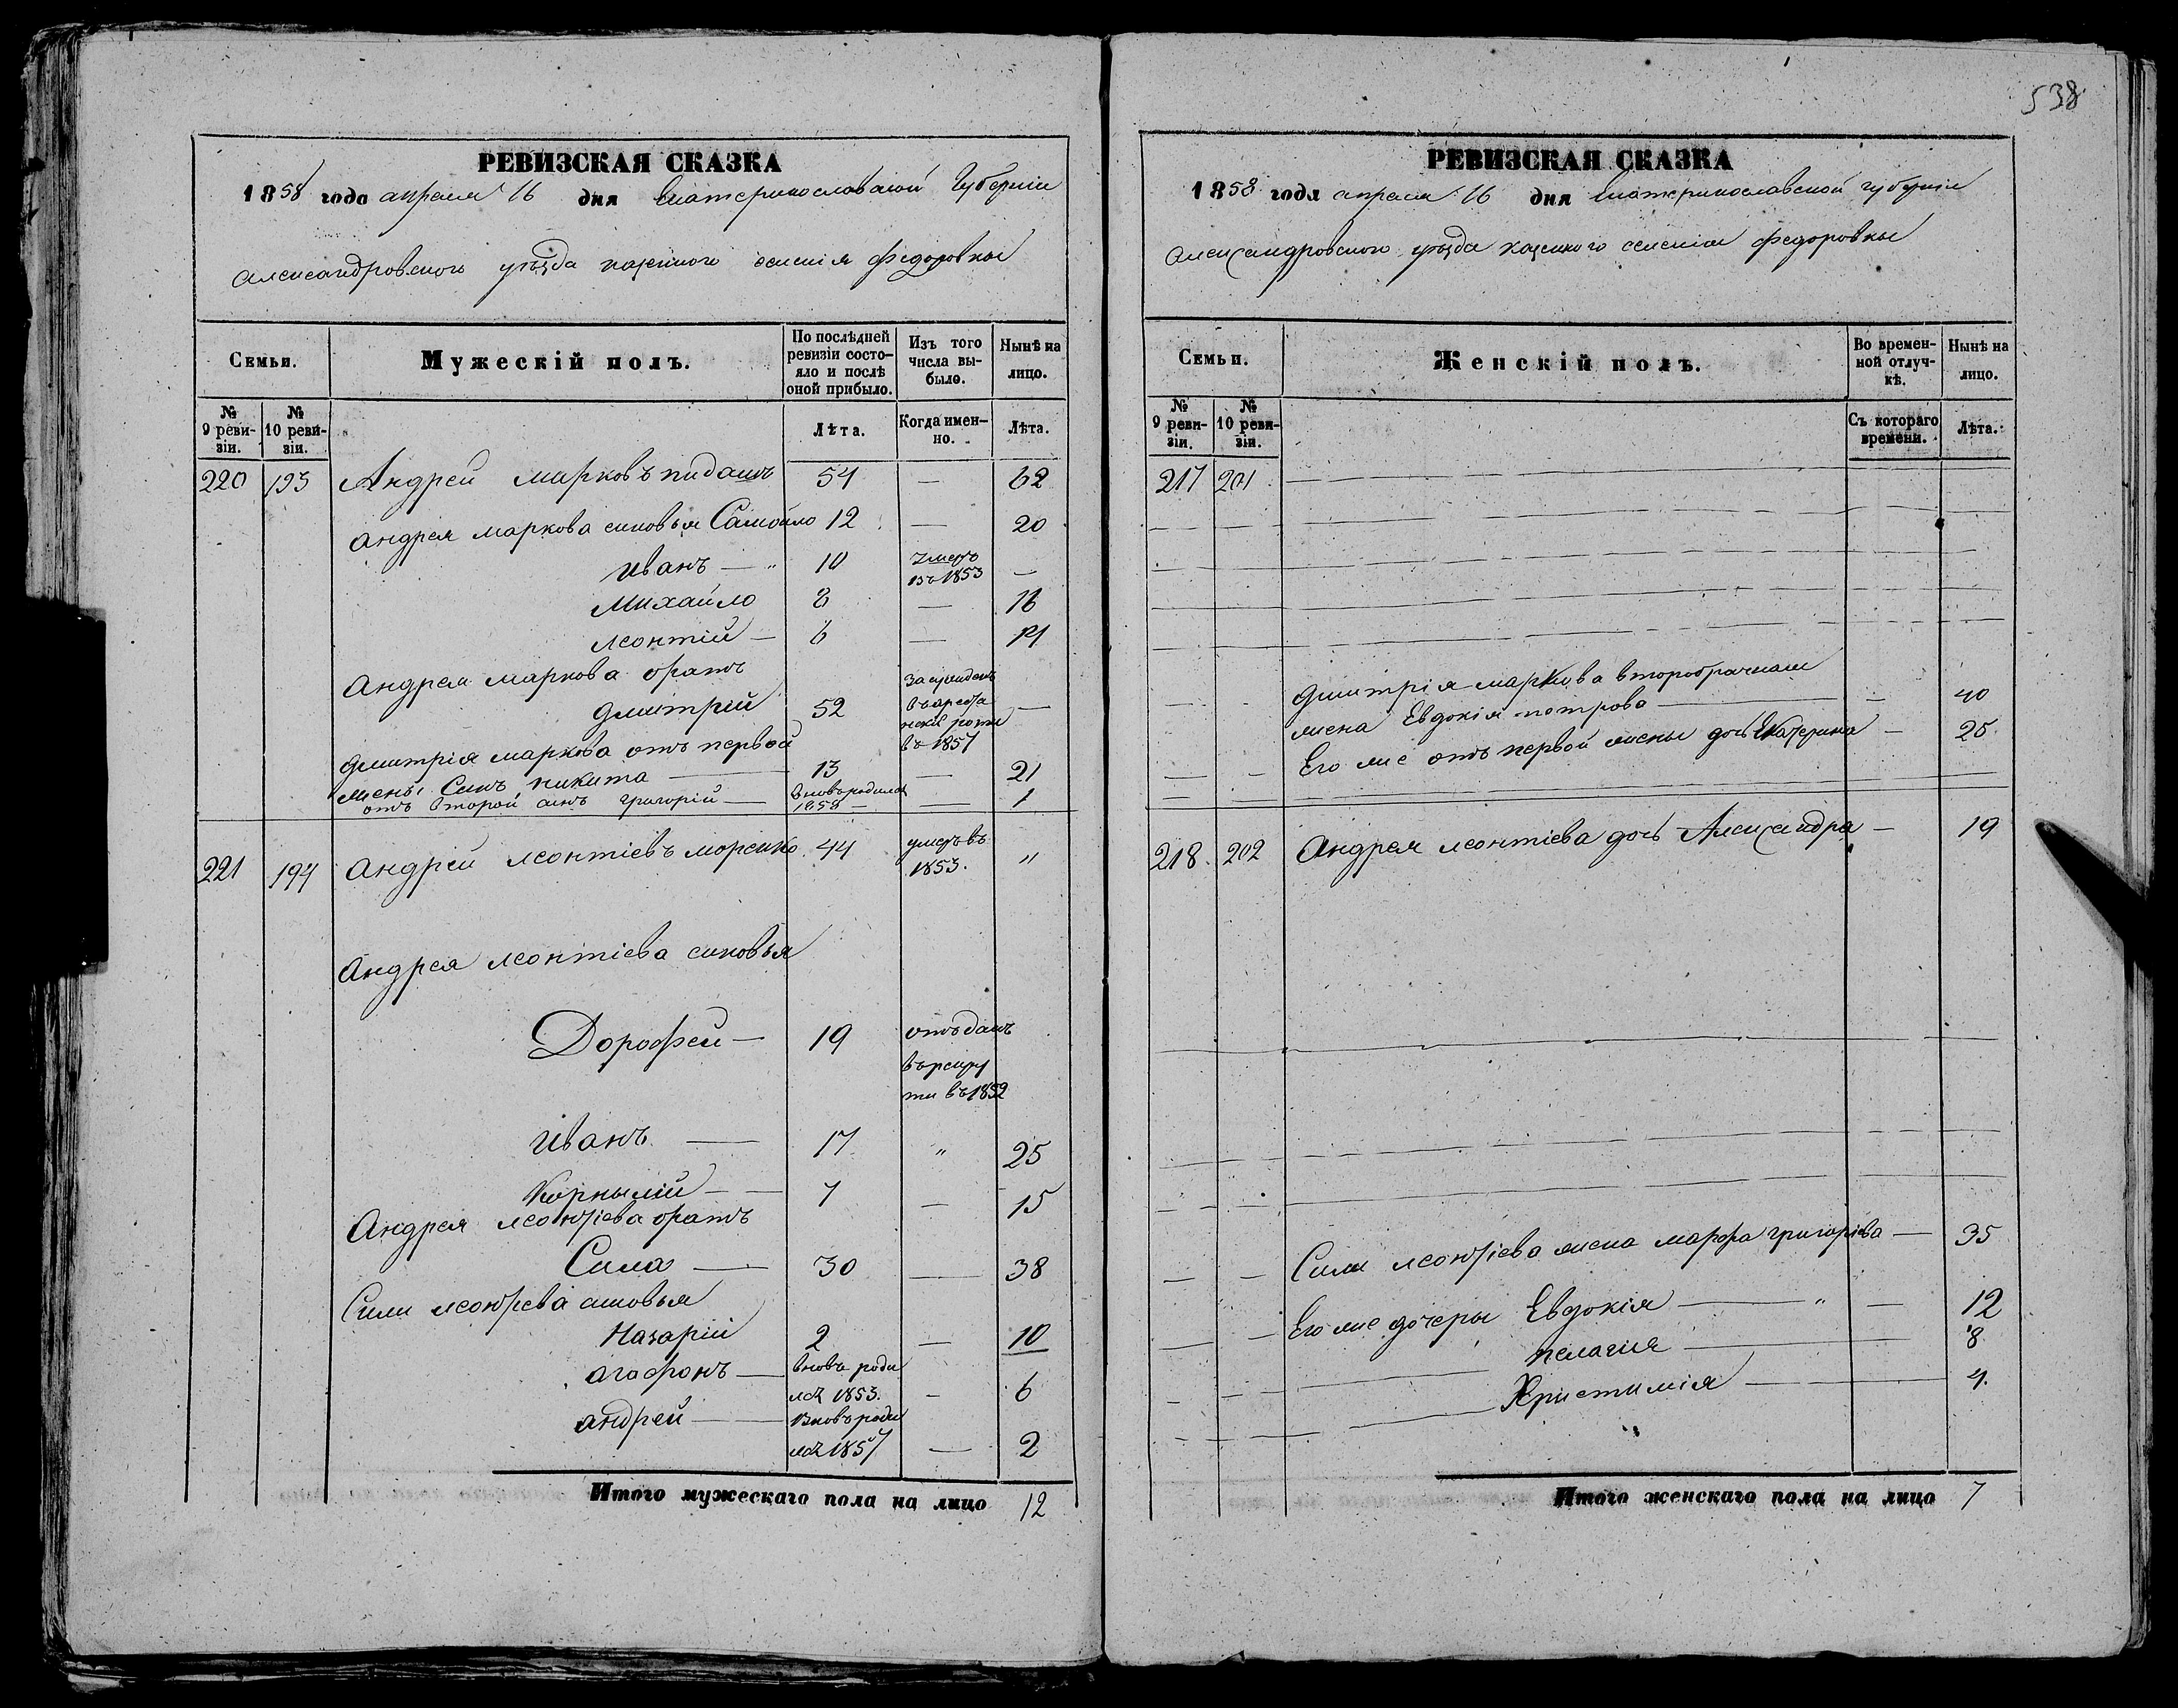 538
РЕВИЗСКАЯ СКАЗКА
1858 года апреля 16 дня Екатеринославской Губернiи
Александровского уѣзда казенного селенiя Федоровки
Семьи. Мужескiй полъ. По послѣдней ревизiи состояло и послѣ оной прибыло. Изъ того числа выбыло. Нынѣ на лицо.
№ 9 ревизiи. № 10 ревизiи. Лѣта. Когда именно. Лѣта.
220 193 Андрей Марковъ 54 — 62
Андрея Маркова сыновья Самойло 12 — 20
Иванъ — 10 Умеръ въ 1853 —
Михайло 8 — 16
Леонтiй — 6 — 14
Андрея Маркова братъ
Дмитрiй 52 въ 1857 —
Дмитрiя Маркова отъ первой
жены Сынъ Никита — 13 — 21
отъ второй сынъ Григорiй — вновь родился 1858 — — 1
221 194 Андрей Леонтiевъ 44 умеръ въ 1853. "
Андрея Леонтiева сыновья
Дорофей — 19 отъданъ
въ рекру
ты въ 1852
Иванъ — 17 " 25
Корнылiй — 7 — 15
Андрея Леонтiева братъ
Сила — 30 — 38
Силы Леонтiева сыновья
Назарiй 2 — 10
Агафонъ — вновь роди
лся 1853. — 6
Андрей — вновь роди
лся 1857 — 2
Итого мужескаго пола на лицо 12
РЕВИЗСКАЯ СКАЗКА
1858 года апреля 16 дня Екатеринославской губернiи
Александровского уѣзда казенного селенiя Федоровки
Семьи. Женскiй полъ. Во временной отлучкѣ. Нынѣ на лицо.
№ 9 ревизiи. № 10 ревизiи. Съ котораго времени. Лѣта.
217 201
Дмитрiя Маркова второбрачная
жена Евдокiя Петрова — — 40
Его же отъ первой жены дочь Екатерина — 25.
218. 202 Андрея Леонтiева дочь Александра — 19
Силы Леонтiева жена Марфа Григорiева — 35
Его же дочеры Евдокiя — " — 12
Пелагiя — 8
Христинiя — 4.
Итого женскаго пола на лицо 7